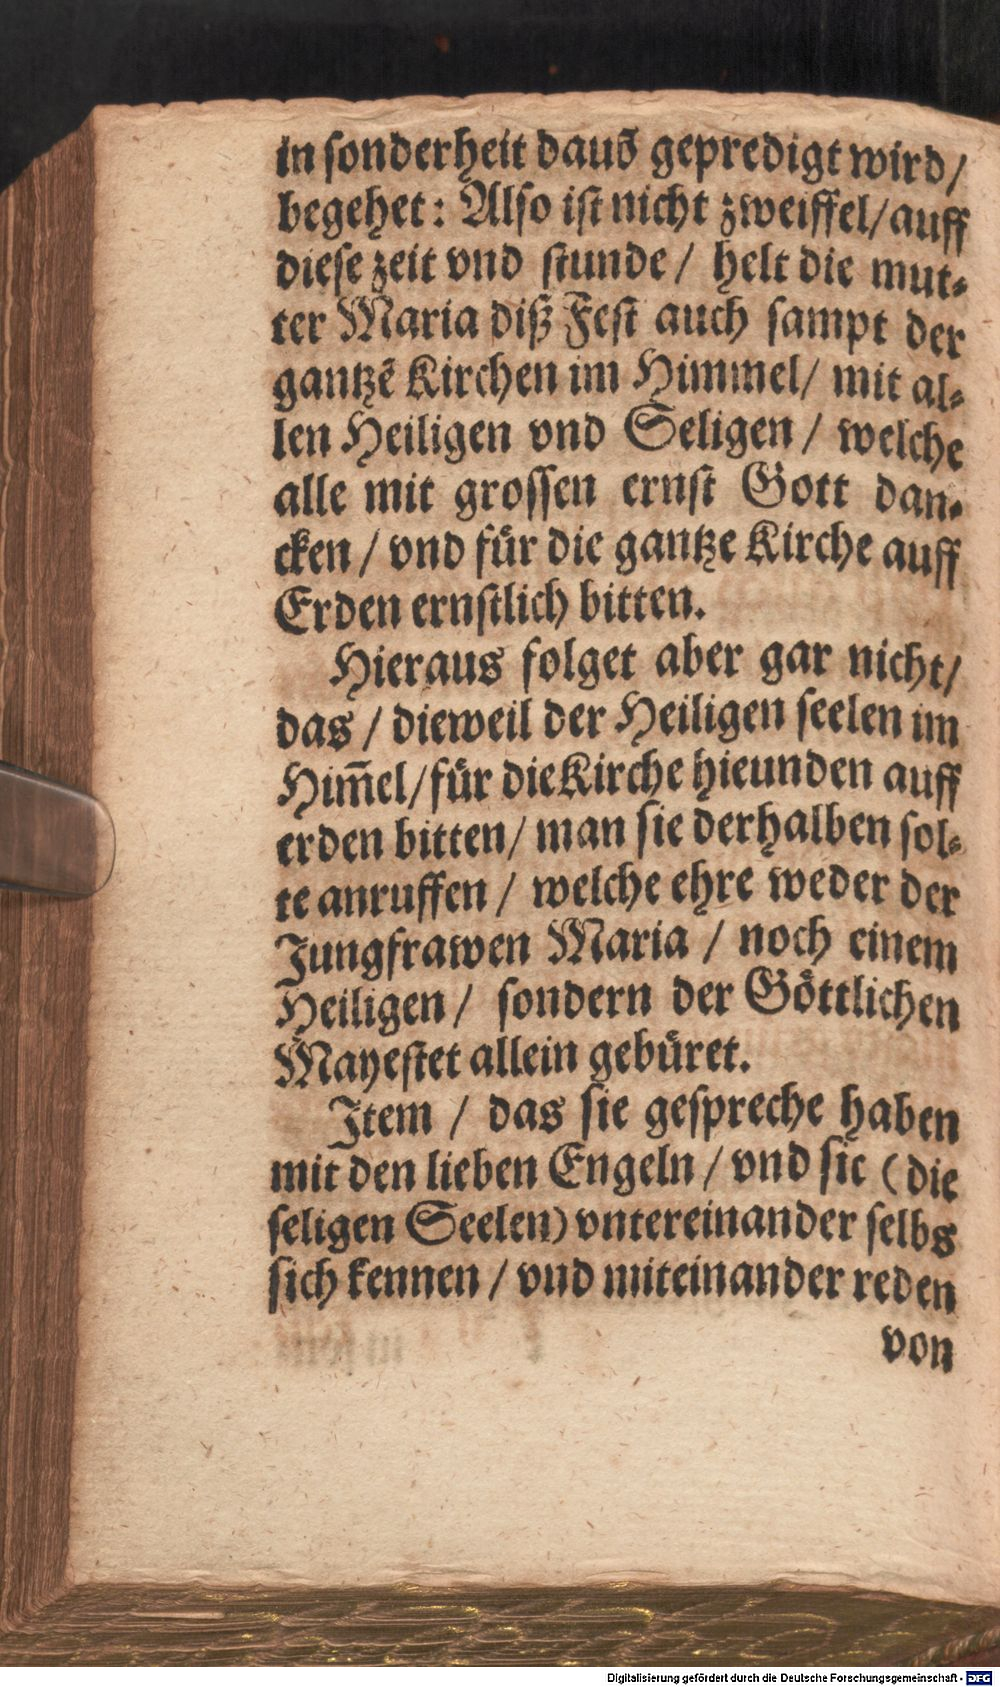 in sonderheit dauõ gepredigt wird/
begehet: Also ist nicht zweiffel/auff
diese zeit vnd stunde/ helt die mut-
ter Maria diß Fest auch sampt der
gantzẽ Kirchen im Himmel/ mit al-
len Heiligen vnd Seligen/ welche
alle mit grossen ernst Gott dan-
cken/ vnd für die gantze Kirche auff
Erden ernstlich bitten.
Hieraus folget aber gar nicht/
das/ dieweil der Heiligen seelen im
Him̃el/für dieKirche hieunden auff
erden bitten/ man sie derhalben sol-
te anruffen/ welche ehre weder der
Jungfrawen Maria/ noch einem
Heiligen/ sondern der Göttlichen
Mayestet allein gebüret.
Item/ das sie gespreche haben
mit den lieben Engeln/ vnd sie (die
seligen Seelen) vntereinander selbs
sich kennen/ vnd miteinander reden
von
Digitalisierung gefördert durch die Deutsche Forschungsgemeinschaft - DFG